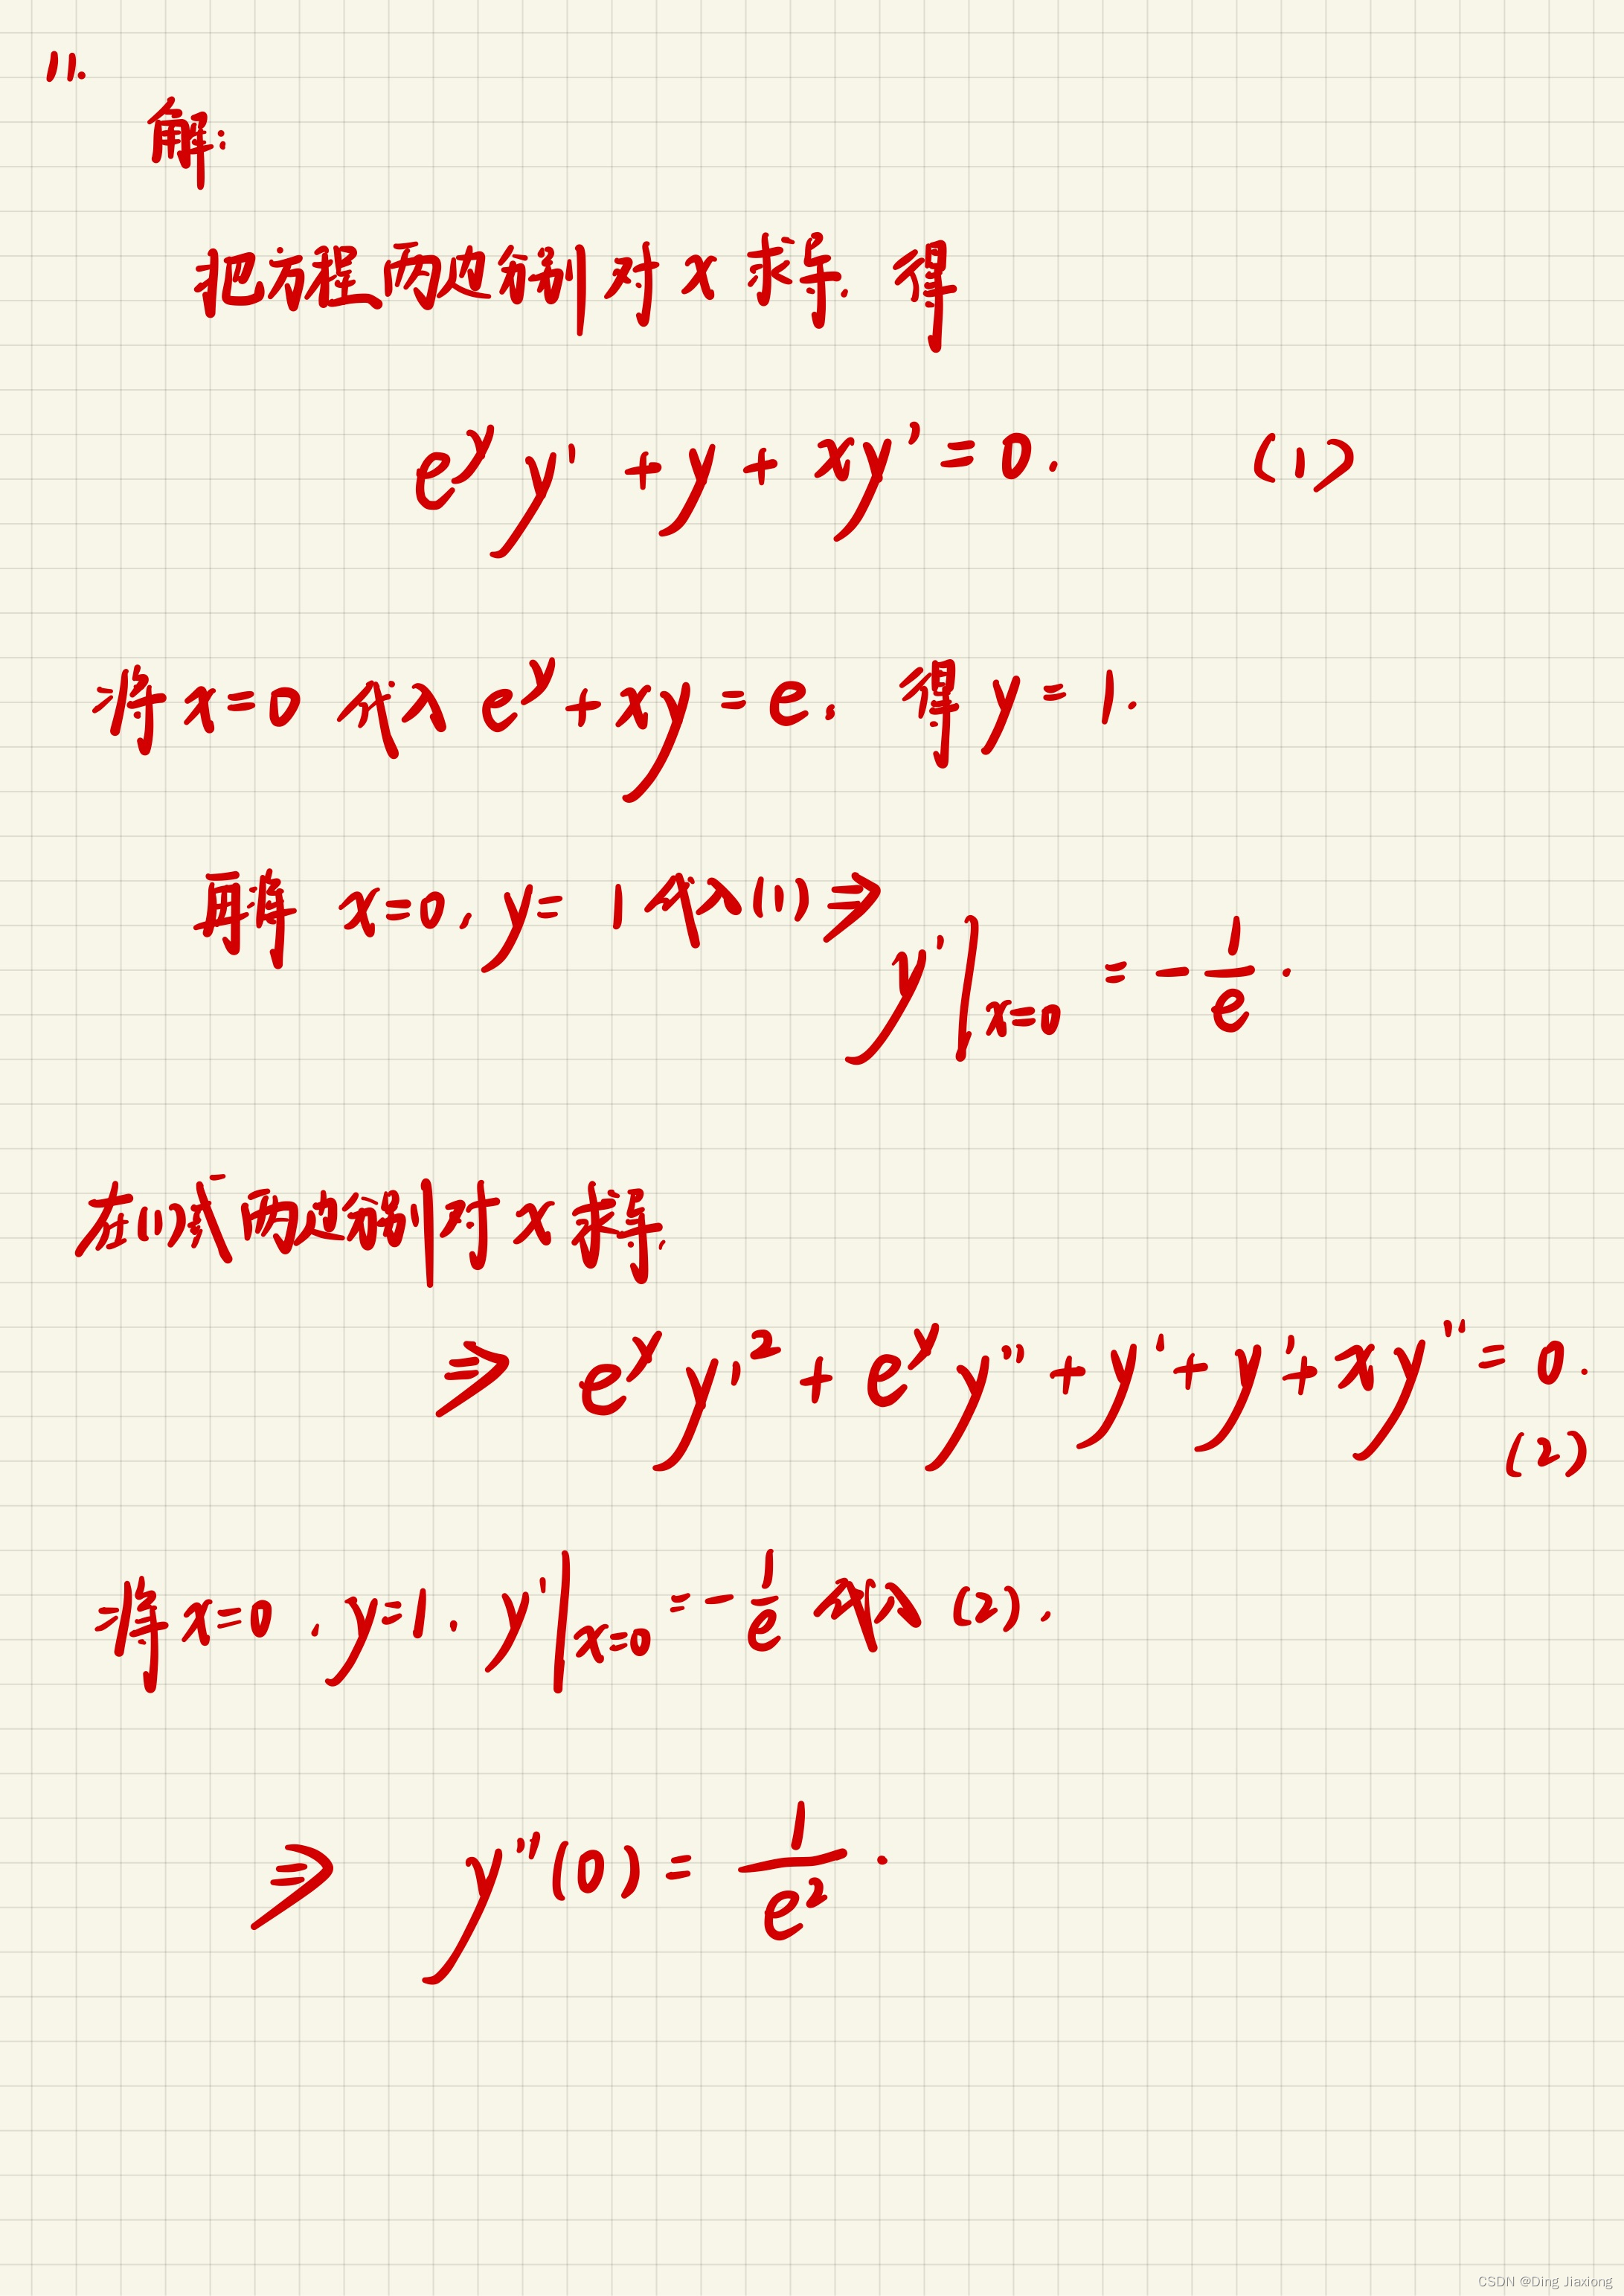 11.
解:
把方程两边分别对x求导. 得
e^y y' + y + xy' = 0. (1)
将x=0 代入 e^y + xy = e. 得 y = 1.
再将 x=0, y=1 代入(1) ⇒
y'|_{x=0} = -\frac{1}{e}.
在(1)式两边分别对x求导.
⇒ e^y y'^2 + e^y y'' + y' + y' + xy'' = 0.
(2)
将x=0, y=1. y'|_{x=0} = -\frac{1}{e} 代入 (2).
⇒ y''(0) = \frac{1}{e^2}.
CSDN @Ding Jiaxiong